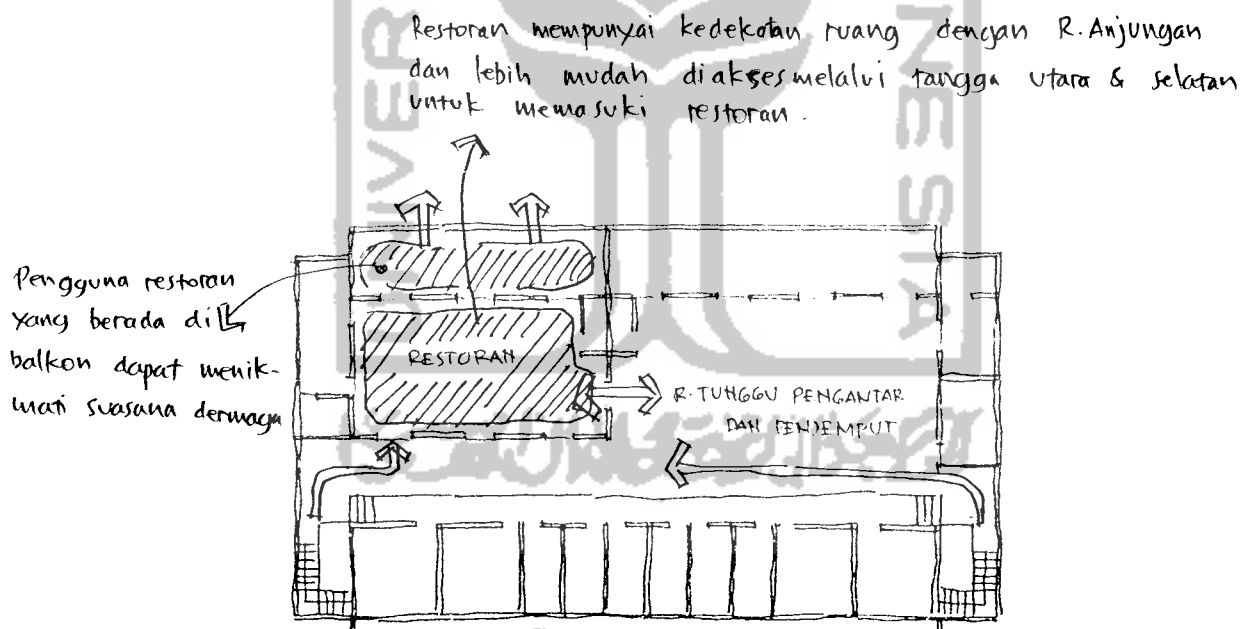 Restoran mempunyai kedekatan ruang dengan R. Anjungan
dan lebih mudah diakses melalui tangga utara & selatan
untuk memasuki restoran.
Pengguna restoran
yang berada di
balkon dapat menik-
mati suasana dermaga
RESTORAN
R. TUNGGU PENGANTAR
DAN PENJEMPUT
UNIVER
NESIA